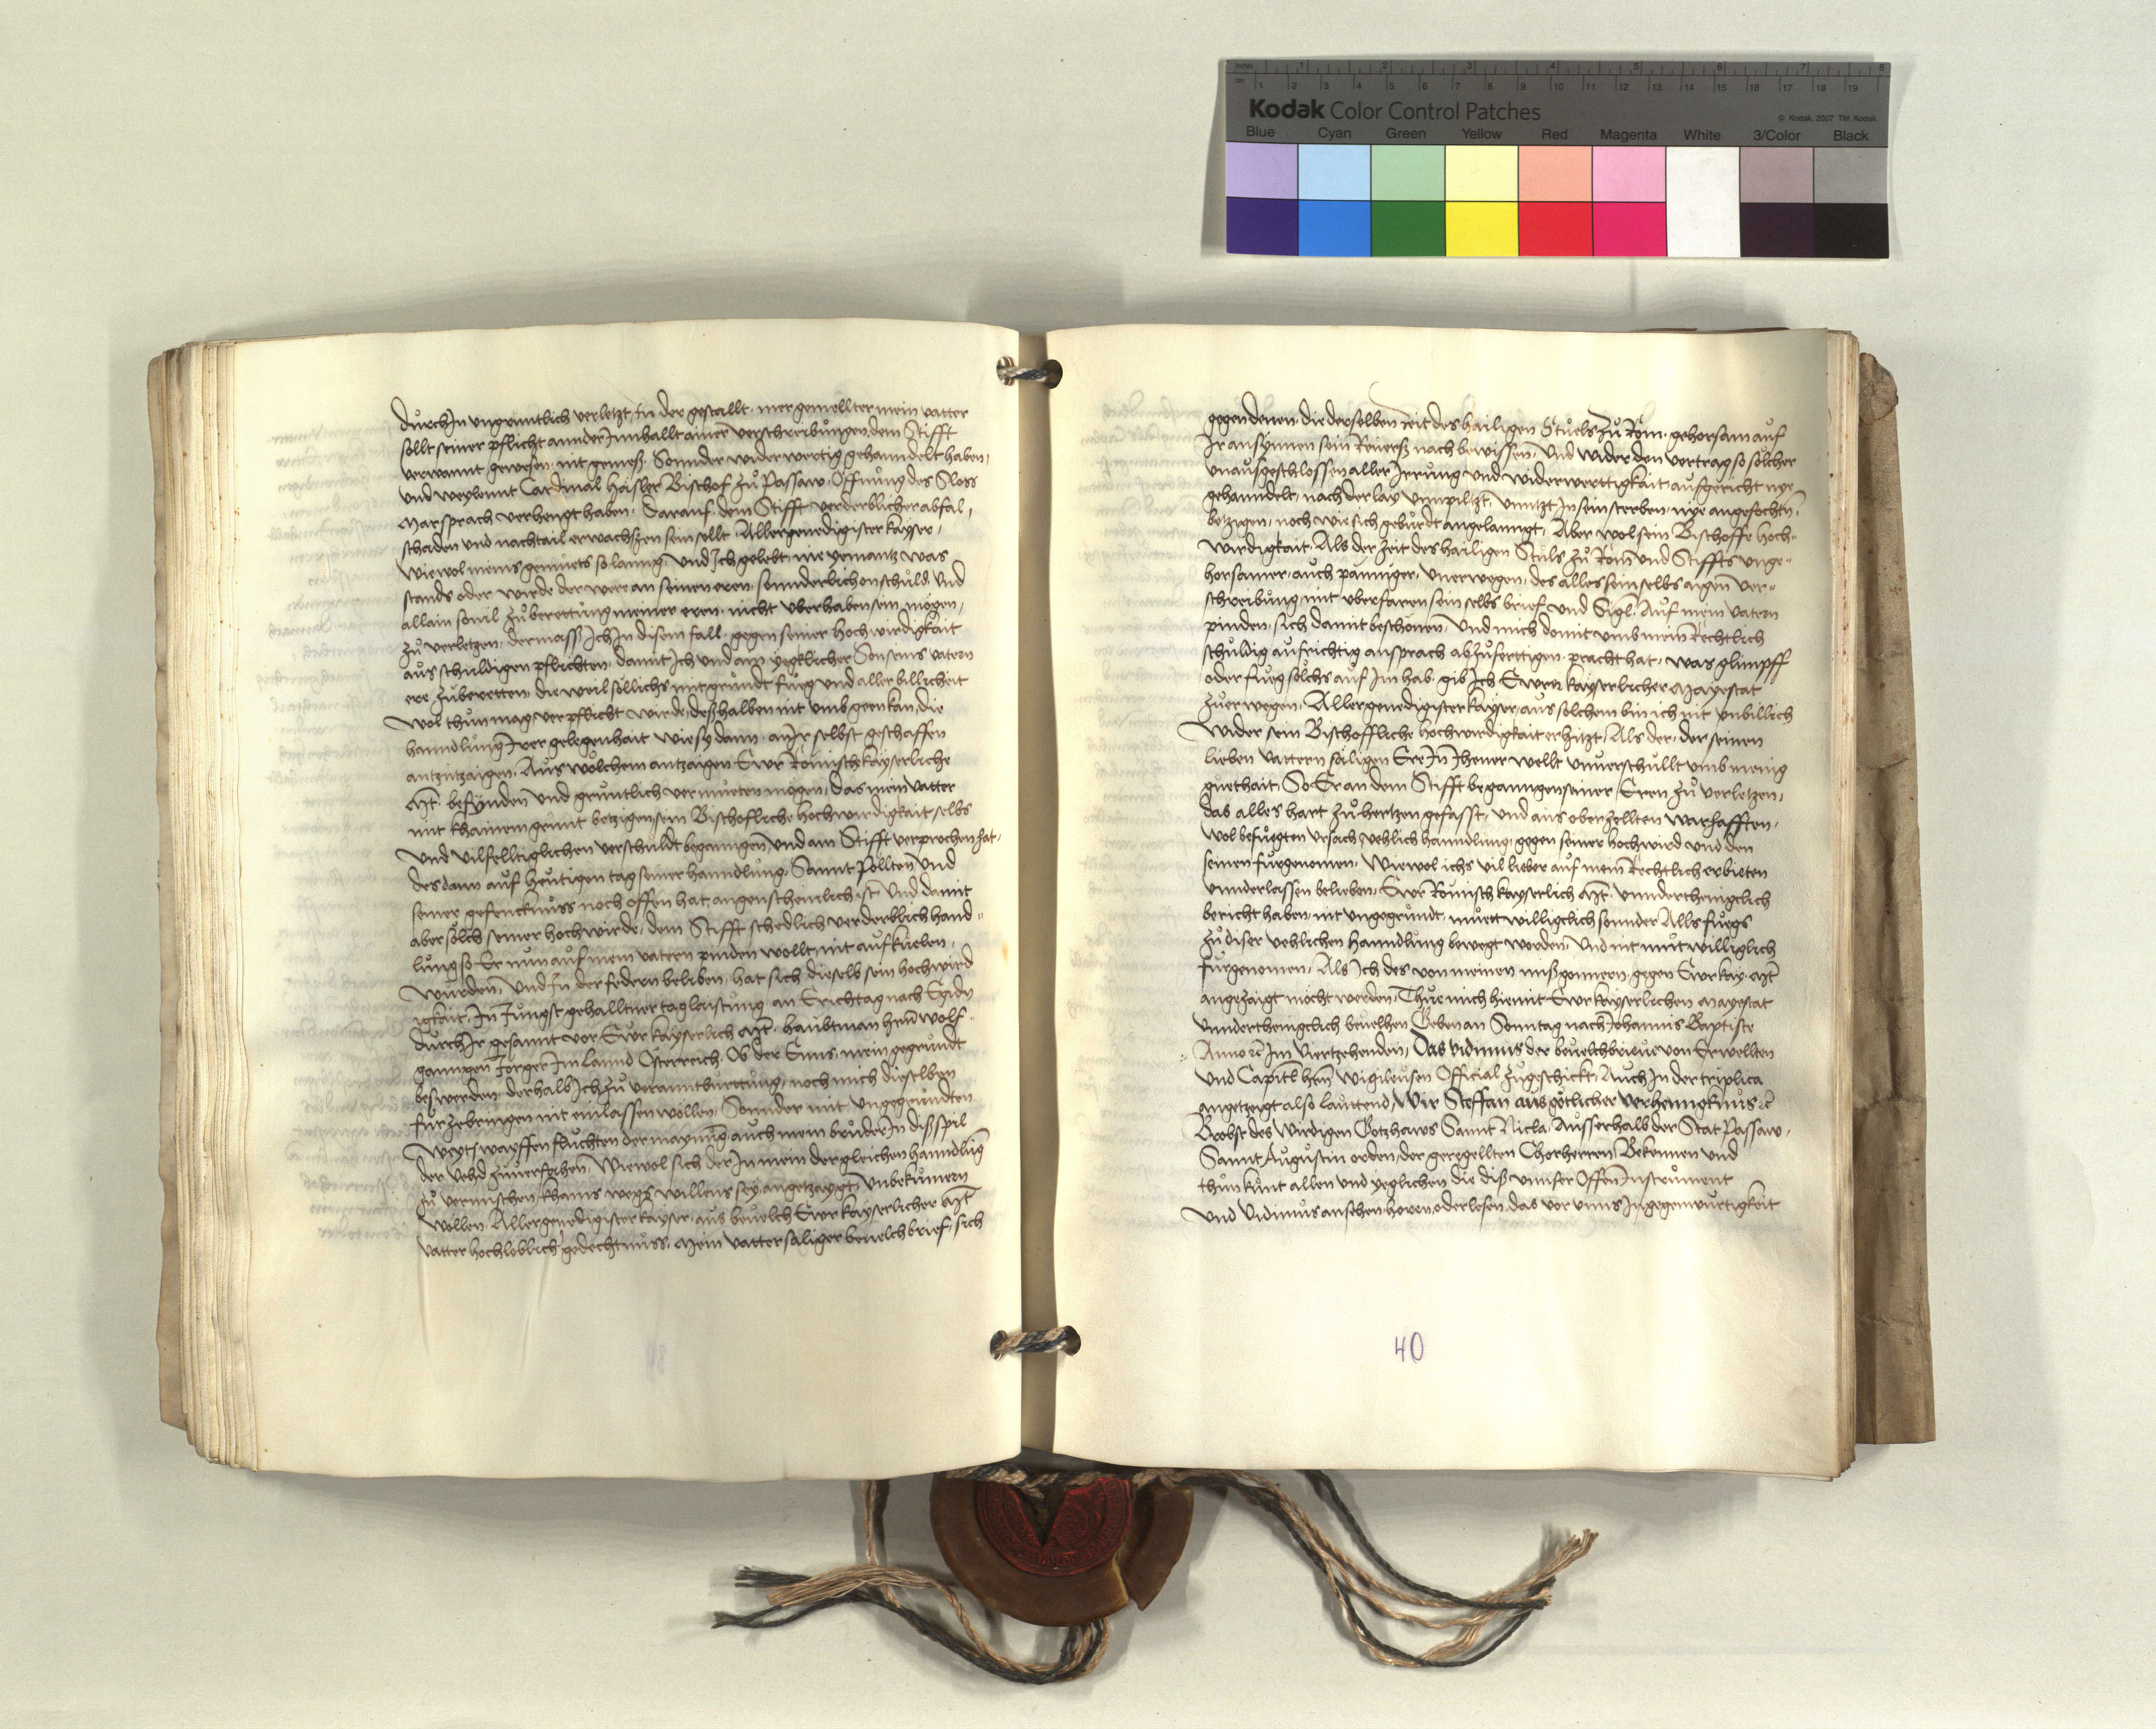 inches 1 2 3 4 5 6 7 8
cm 1 2 3 4 5 6 7 8 9 10 11 12 13 14 15 16 17 18 19
Kodak Color Control Patches
© Kodak, 2007 TM: Kodak
Blue Cyan Green Yellow Red Magenta White 3/Color Black
durch In ungruntlich verletzt In der gestallt. mer gemellter mein vatter
sollt seiner pflicht annder Innhallt ainer verschreibůngen dem Stifft
verwannt gewesen. nit gemeß. Sonnder widerwertig gehanndelt haben,
und weylennt Cardinal häsler Bischof zů Passaw. Offnůng des Sloss
Marsprach verhengt haben. Darauf dem Stifft verderblicher abfal,
schaden und nachtail erwachssen sein sollt. Allergenedigister kayser,
Wiewol meins gemuets so lanng, Und Ich gelebt, nie yemantz was
stands oder wirde der were an seinen eren, sonnderlich on schuld, Und
allain sovil zů berettung meiner eren. nicht uberhaben sein mögen,
zů verletzen, dermass Ich In disem fall. gegen seiner Hochwirdigkait
aus schuldigen pflichten, damit Ich und ain yegklicher Son seins vatern
ere zůberetten, die weil söllichs mit grůndt fueg und aller billicheit
wol thun mag verpflicht wirde, deßhalben nit umb geen kan, die
hanndlung Irer gelegenhait wie sy dann. an Ir selbst geschaffen
antzuzaigen. Aus wölchem antzaigen Ewr Römisch kayserliche
Mt. befynden und gruntlich vermueten mögen, das mein vatter
mit khainem grunt betzigen, sein Bischofliche Hochwirdigkait, selbs
und vilfelltiglichen verschuldt begangen und am Stifft verprochen hat,
des dann auf heutigen tag seiner hanndlung. Sannt Pöllten und
seiner gefencknuss noch offen hat, augenscheinlich ist. Und damit
aber sölch seiner hochwirde, dem Stifft schedlich verderblich hand-
lung so Er nun auf mein vatern pinden wollt, nit aufkueben,
wurden, Und In der federn beliben, hat sich dieselb sein hochwird
igkait, In Jungst gehalltner taglaistung an Erichtag nach Egidy
durch Ir gesannt vor Ewr kayserlich Mt. haubtman hern wolf-
ganngen Jörger Im lannd Österreich. Ob der Enns, mein gegründt
beswerden, derhalb Ich zů veranntwurttung, noch mich dieselben
fur zebringen nit einlassen wöllen, Sonnder mit ungegrundten
der Vehd zuuerfahen, Wiewol sich der In mein dergleichen hanndlung
zů vermischen khains wegs willens sey angetzaygt, unbekümern
wöllen. Allergenedigister kayser, aus beuelch Ewr kayserlicher Mt
vatter hochloblich gedechtnuss. Mein vatter säliger beuelchbrief, sich
gegen denen, die derselben zeit des heiligen Stuels zů Rom. gehorsam auf
Ir ansynnen sein Reuerß nach bewissen, Und wider den vertrag so sölcher
unaufgeschlossen aller Irrung und widerwerttigkait, aufgericht nye
gehanndelt, nach der lay unnpillzt, unntzt In sein sterben, nye angefochtn,
betzigen, noch wie sich gebürdt angelanngt, Aber wol sein Bischoffe hoch-
wirdigkait. Als der zeit des hailigen Stuls zů Rom und Stiffts unge-
horsamer, auch pänniger, unerwegen, des alles sein selbs aigen ver-
schreibung mit uberfaren sein selbs brief und Sigl. Auf mein vatern
pinden, sich damit beschönen, Und mich domit umb mein Rechtlich
schuldig aufrichtig ansprach abzůferttigen. pracht hat, was glimpff
oder fueg sölchs auf Im hab. gib Ich Ewrn kayserlicher Mayestat
zuerwegen. Allergenedigister kayser, aus solchem bin ich nit unbillich
wider sein Bischoffliche hochwirdigkait erhitzt, Als der, der seinen
lieben vattern säligen Ere In Ihener wellt unuerschullt umb menig
guethait, So Er an dem Stifft begangen seiner Eren zů verletzen,
das alles hart zů hertzen gefasst, und aus oberzellten warhafften,
wol befuegten ursach vehlich hanndlung, gegen seiner hochwird und den
seinen furgenomen, Wiewol ichs vil lieber auf mein Rechtlich erbieten
unnderlassen belieben, Ewr Römisch kayserlich Mt. unndertheniglich
bericht haben, nit ungegrundt, muettwilliglich sonnder Alls fuegs
zů diser vehlichen Hanndlung bewegt worden, Und nit mutwilliglich
furgenomen, Als Ich des von meinen mißgonnern, gegen Ewr kay. Mt
angezaigt möcht werden, Thue mich hiemit Ewr kayserlichen Mayestat
unndertheniglich beuelhen. Geben an Sonntag nach Johannis Baptiste
Anno zc Im Viertzehenden, Das vidimus der beuelchbrieue von Erwellten
und Capitl hern Wigileusen Official zugeschickt, Auch In der triplica
angetzeigt also lautend, Wir Steffan aus götlicher verhenngknus zc
Brobst des wirdigen Gotzhaws Sannt Nicla. Ausserhalb der Stat Passaw,
Sannt Augustin orden, der geregellten Chorherren, Bekennen und
thun kunt allen und yeglichen die diß unnser Offen Instrument
und Vidimus ansehen hören oder lesen, das vor unns In gegenwurtigkeit
40